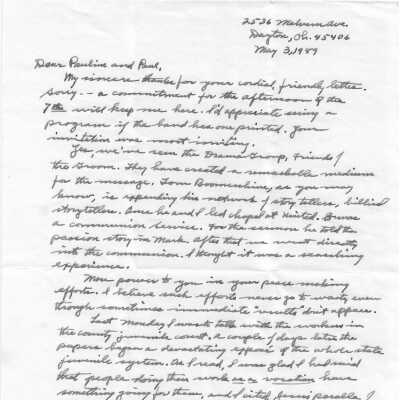 2536 Malvern Ave.
Dayton, Oh. 45406
May 3, 1989
Dear Pauline and Paul,
My sincere thanks for your cordial, friendly letter.
Sorry -- a commitment for the afternoon of the
7th will keep me here. I'd appreciate seeing a
program if the band has one printed. Your
invitation was most inviting.
Yes, we've seen the Drama Group, Friends of
the Groom. They have created a remarkable medium
for the message. Tom Boomershine, as you may
know, is expanding his network of story tellers, biblical
storytellers. Once he and I led chapel at United. It was
a communion service. For the sermon he told the
passion story in Mark. After that we went directly
into the communion. I thought it was a searching
experience.
More power to you in your peace making
efforts. I believe such efforts never go to waste, even
though sometimes immediate results don't appear.
Last Monday I was to talk with the workers in
the county juvenile court. A couple of days later the
papers began a devastating exposé of the whole state
juvenile system. As I read, I was glad I had said
that people doing their work as a vocation have
something going for them, and I cited Jesus' parable of